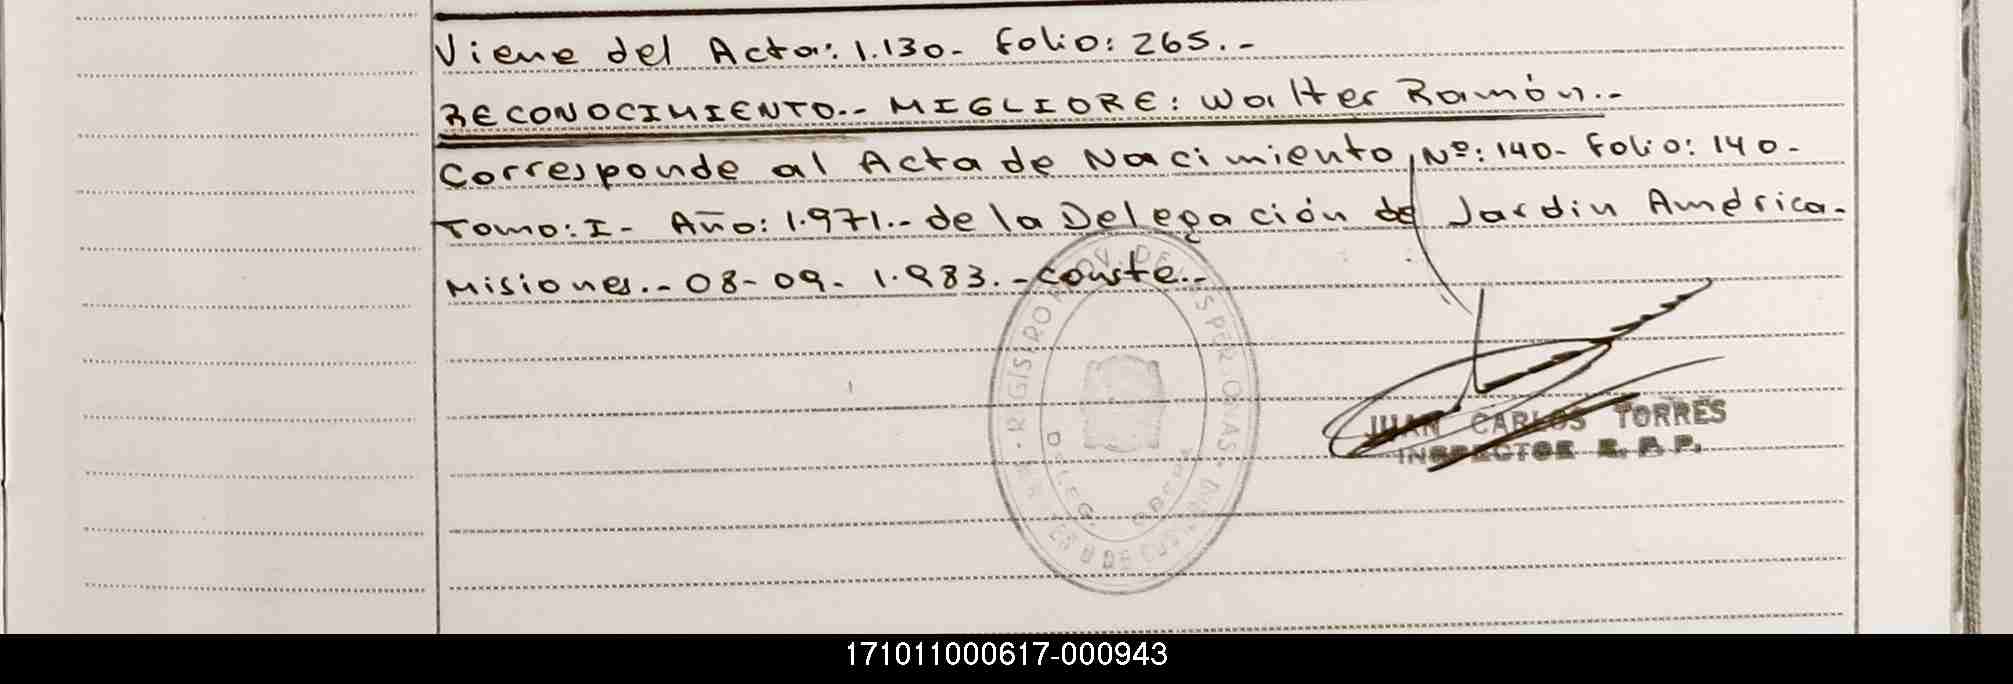 Viene del Acta: 1.130- Folio: 265.-
RECONOCIMIENTO.- MIGLIORE: Walter Ramón.-
Corresponde al Acta de Nacimiento, Nº: 140- Folio: 140-
Tomo: I- Año: 1.971.- de la Delegación de Jardin América-
Misiones.- 08-09-1.983.- Conste.-
JUAN CARLOS TORRES
INSPECTOR R. P. P.
171011000617-000943